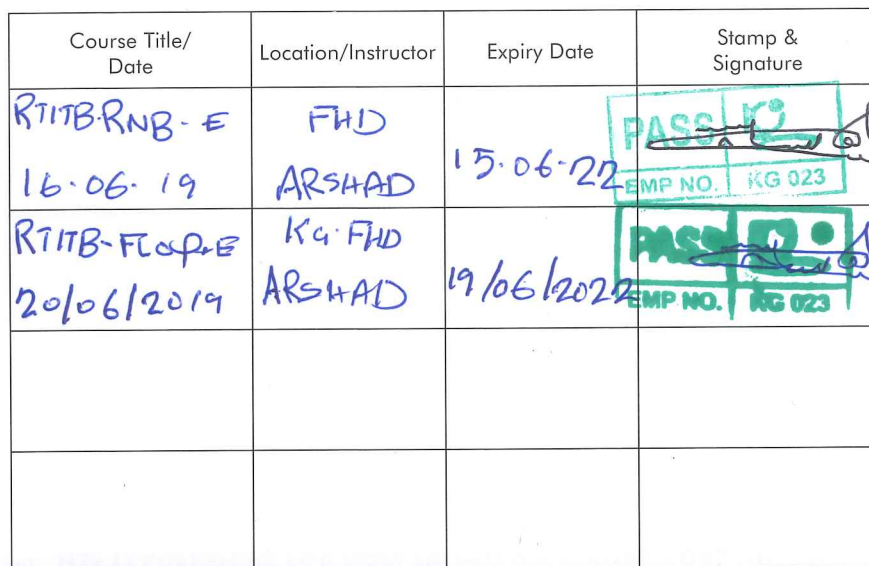 Course Title/
Date
Location/Instructor
Expiry Date
Stamp &
Signature
RTITB-RNB-E
16.06.19
FHD
ARSHAD
15.06.22
PASS
EMP NO. KG 023
RTITB-FLOP-E
20/06/2019
KG.FHD
ARSHAD
19/06/2022
PASS
EMP NO. KG 023